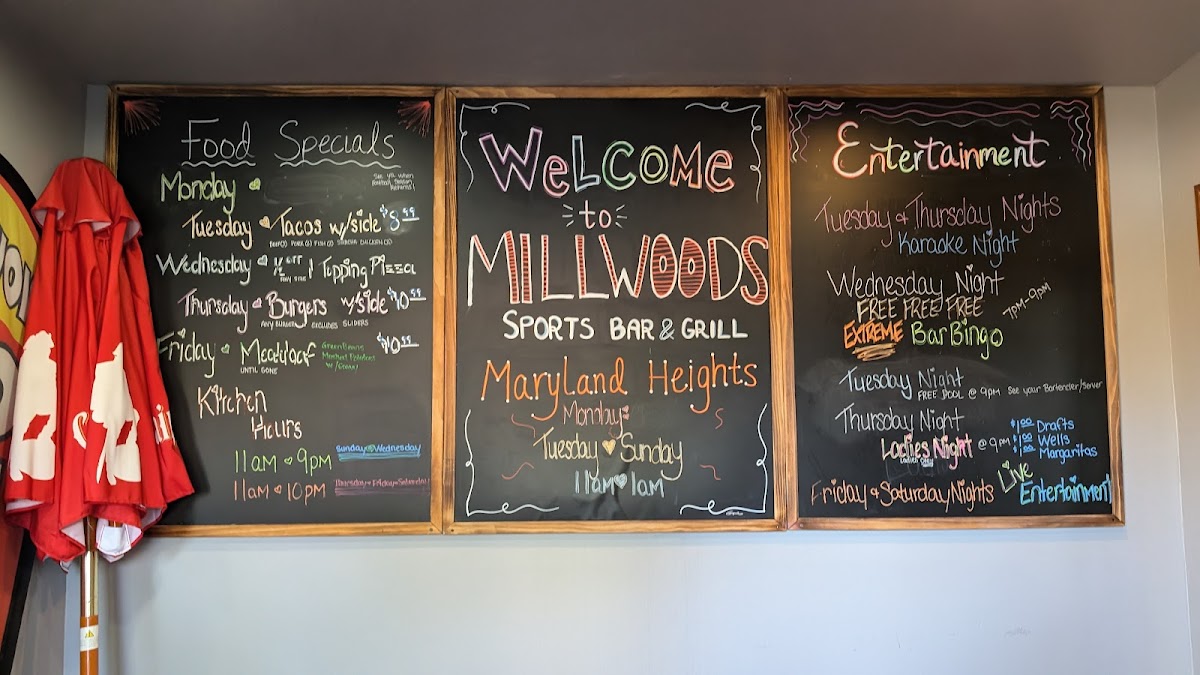 Food Specials
Monday
See ya when
Football Season
Returns!
Tuesday Tacos w/side $8.99
BEEF(3) PORK(3) FISH(3) SRIRACHA CHICKEN(3)
Wednesday ½ OFF 1 Topping Pizza
ANY SIZE
Thursday Burgers w/side $10.99
ANY BURGER EXCLUDES SLIDERS
Friday Meatloaf $10.99
UNTIL GONE
Green Beans
Mashed Potatoes
w/Gravy
Kitchen
Hours
11am 9pm Sunday Wednesday
11am 10pm Thursday Friday Saturday
Welcome
to
MILLWOODS
SPORTS BAR & GRILL
Maryland Heights
Monday:
Tuesday Sunday
11am 1am
Entertainment
Tuesday & Thursday Nights
Karaoke Night
Wednesday Night
FREE FREE FREE 7pm-9pm
EXTREME Bar Bingo
Tuesday Night
FREE POOL @ 9pm See your Bartender/Server
Thursday Night
Ladies Night @ 9pm
Ladies Only
$1.00 Drafts
$1.00 Wells
$1.00 Margaritas
Friday & Saturday Nights Live
Entertainment